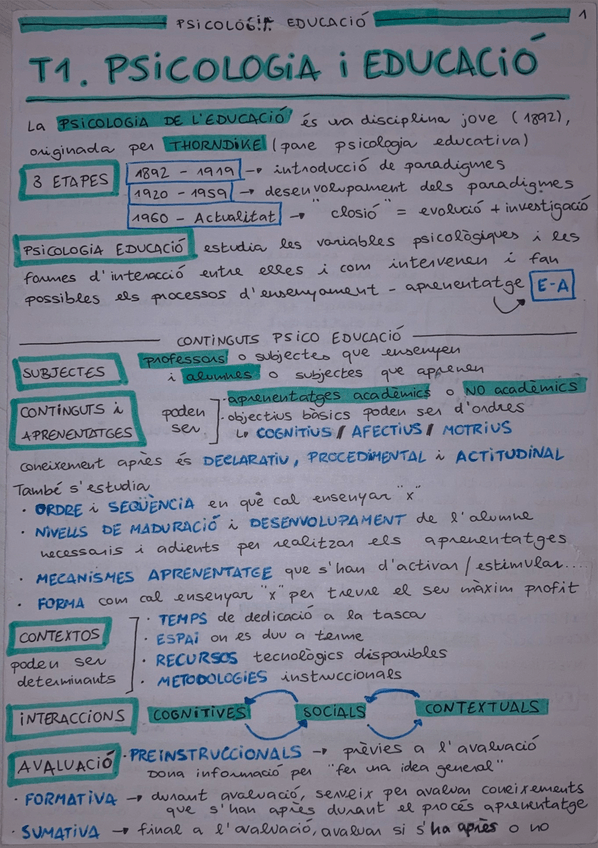 PSICOLOGIA EDUCACIÓ
1
T1. PSICOLOGIA i EDUCACIÓ
La PSICOLOGIA DE L'EDUCACIÓ és una disciplina jove (1892),
originada per THORNDIKE (pare psicologia educativa)
3 ETAPES
1892 - 1919 → introducció de paradigmes
1920 - 1959 → desenvolupament dels paradigmes
1960 - Actualitat → "closió" = evolució + investigació
PSICOLOGIA EDUCACIÓ estudia les variables psicològiques i les
formes d'interacció entre elles i com intervenen i fan
possibles els processos d'ensenyament - aprenentatge E-A
CONTINGUTS PSICO EDUCACIÓ
SUBJECTES
professors o subjectes que ensenyen
i alumnes o subjectes que aprenen
CONTINGUTS i
APRENENTATGES
poden
ser
· aprenentatges acadèmics o NO acadèmics
· objectius bàsics poden ser d'ordres
↳ COGNITIUS / AFECTIUS / MOTRIUS
coneixement après és DECLARATIU, PROCEDIMENTAL i ACTITUDINAL
També s'estudia
· ORDRE i SEQÜÈNCIA en què cal ensenyar "x"
· NIVELLS DE MADURACIÓ i DESENVOLUPAMENT de l'alumne
necessaris i adients per realitzar els aprenentatges
· MECANISMES APRENENTATGE que s'han d'activar / estimular....
· FORMA com cal ensenyar "x" per treure el seu màxim profit
CONTEXTOS
poden ser
determinants
· TEMPS de dedicació a la tasca
· ESPAI on es duu a terme
· RECURSOS tecnològics disponibles
· METODOLOGIES instruccionals
INTERACCIONS
COGNITIVES SOCIALS CONTEXTUALS
AVALUACIÓ
· PREINSTRUCCIONALS → prèvies a l'avaluació
Dona informació per "fer una idea general"
· FORMATIVA → durant avaluació, serveix per avaluar coneixements
que s'han après durant el procés aprenentatge
· SUMATIVA → final a l'avaluació, avaluar si s'ha après o no